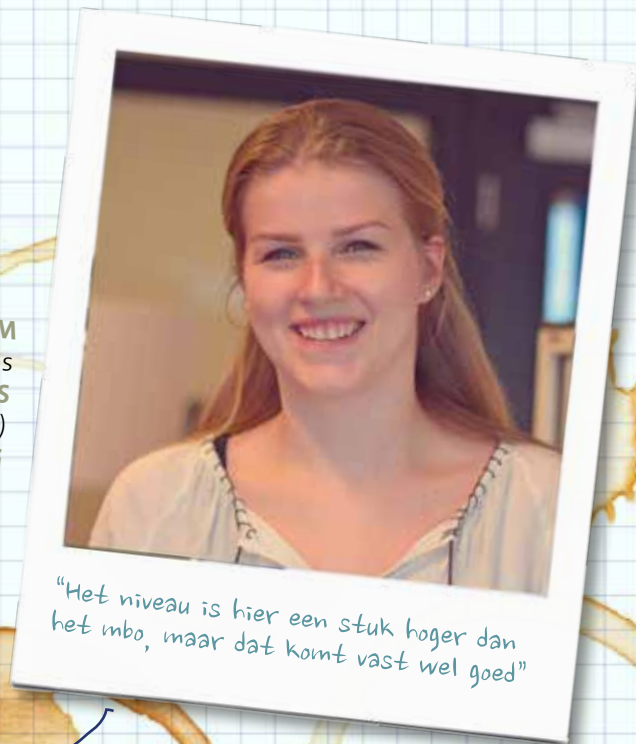 M
s
S
)
“Het niveau is hier een stuk hoger dan
het mbo, maar dat komt vast wel goed”